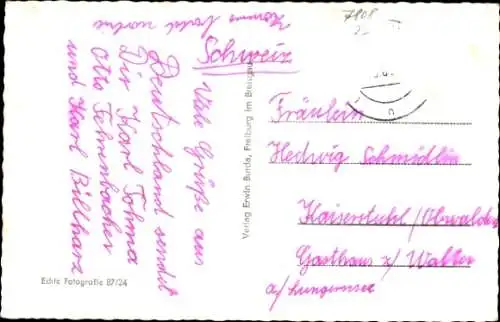 Viele Grüße aus
Deutschland sendet
Dir Karl Tohma
Otto Fehrenbacher
und Karl Billharz
Schweiz
Verlag Erwin Burda, Freiburg im Breisgau
Echte Fotografie 87/24
7808
Fräulein
Hedwig Schmidlin
Kaiserstuhl/Obwalden
Gasthaus z/ Walter
a/Lungernsee